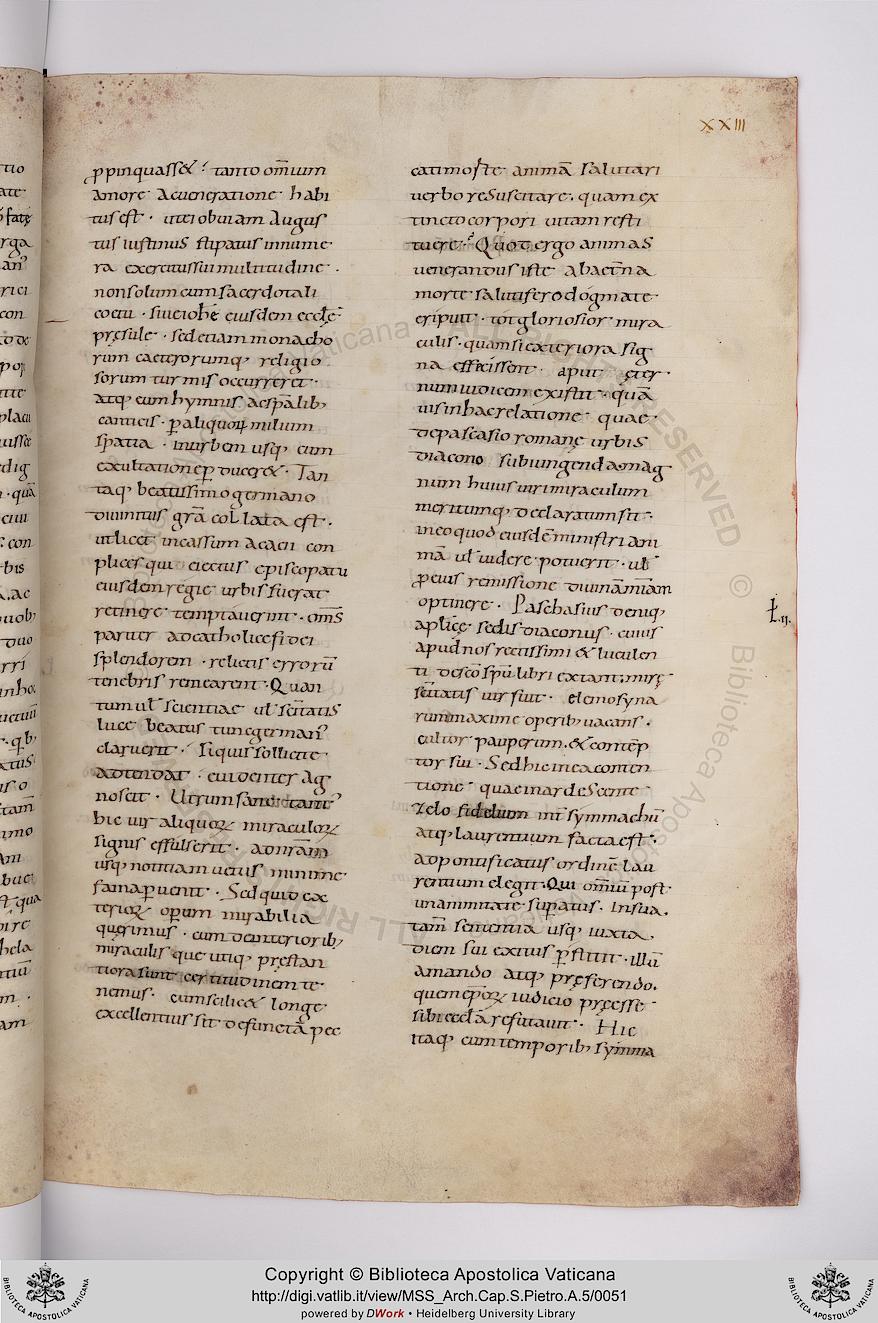 XXIII
ꝓpinquass&. tanto om̄ium
amore acueneratione habi
tus est. uti obuiam augus
tus iustinus stipatus innume
ra exercitus sui multitudine.
non solum cum sacerdotali
coetu. siue iohē eiusdem eccłę
pręsule. sed etiam monacho
rum caeterorumq; religio
sorum turmis occurreret.
atq; cum hymnis ac sp̄alib;
canticis. ꝑ aliquoꝝ milium
spatia. inurbem usq; cum
exultatione ꝑducer&. Tan
taq; beatissimo germano
diuinitus gr̄a collata est.
ut licet incassum acacii con
plices qui eiectus episcopatu
eiusdem regię urbis fuerat
retinere temptauerint. om̄s
pariter ad catholicę fidei
splendorem. relictis errorū
tenebris remearent. Quan
tum uł scientiae uł sc̄itatis
luce beatus tunc german
claruerit. siquis sollicite
adtendat. euidenter ag
noscit. Utrum sanc tant
hic uir aliquoꝝ miraculoꝝ
signis effulserit. ad nr̄am
usq; notitiam uetus minime
fama ꝑuenit. Sed quid ex
terioꝝ operum mirabilia
querimus. cum de interiorib;
miraculis que utiq; pręstan
tiora sunt certitudinem te
nemus. cum scilic& longe
excellentius sit defunctā pec
cati morte animā salutari
uerbo resuscitare. quam ex
tincto corpori uitam resti
tuere. Quot ergo animas
uenerandus iste ab aet̄na
morte salutifero dogmate
eripuit. tot gloriosior mira
culis. quam si exteriora sig
na effecisset. aput ęter
num iudicem existit. quā
uis in hac relatione quae
de pascasio romanę urbis
diacono subiungenda. mag
num huius uiri miraculum
meritumq; declaratum sit.
in eo quod eiusdē ministri ani
mā uł uidere potuerit. uł
ꝓ eius remissione diuinā mīam
optinere. Paschasius deniq;
aplicę sedis diaconus. cuius
apud nos rectissimi & luculen
ti de sc̄o sp̄u libri extant. mirę
sc̄itatis uir fuit. elemosyna
rum maxime operib; uacans.
cultor pauperum. & contēp
tor sui. Sed hic in ea conten
tione quae inardescente
zelo fidelium int̄ symmachū
atq; laurentium facta est.
ad pontificatus ordinē lau
rentium elegit. Qui om̄iū post
unanimitate superatus. In sua
tam̄ sententia usq; iuxta
diem sui exitus ꝑstitit. illū
amando atq; pręferendo.
quem ep̄oꝝ iudicio pręesse
sibi eccła refutauit. Hic
itaq; cum temporib; symma
Ł. ii.
Copyright © Biblioteca Apostolica Vaticana
http://digi.vatlib.it/view/MSS_Arch.Cap.S.Pietro.A.5/0051
powered by DWork • Heidelberg University Library